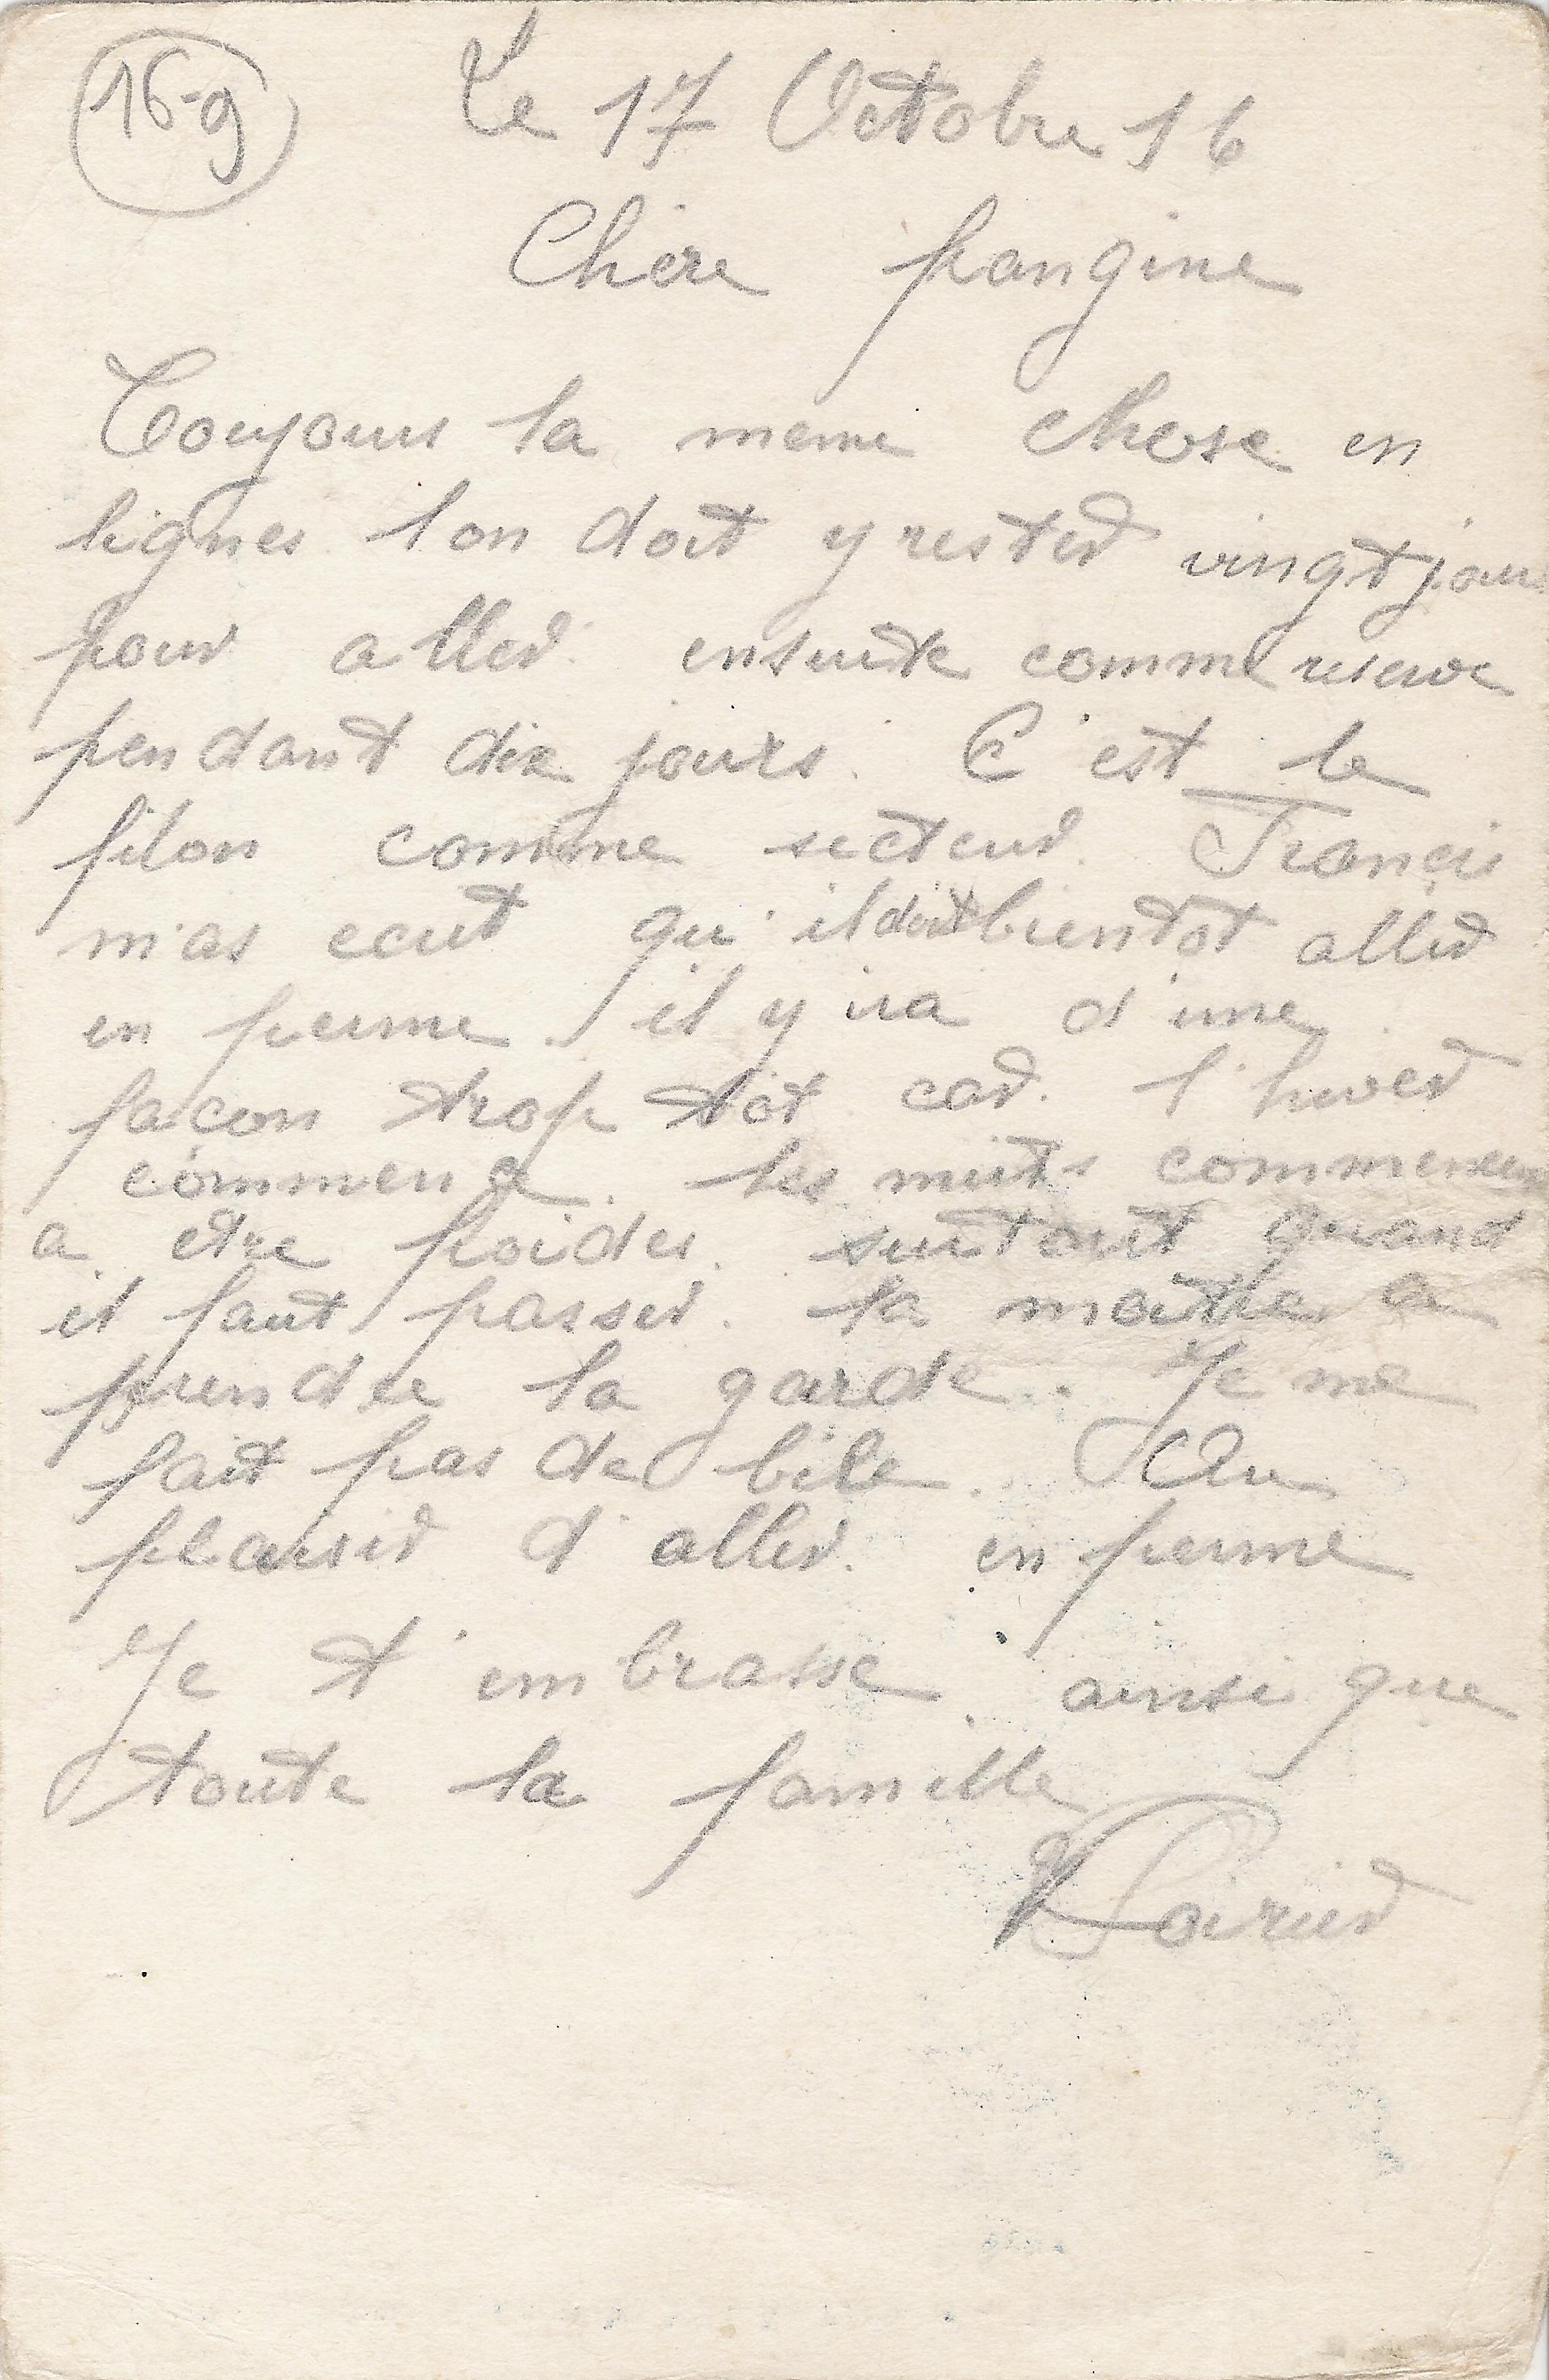 16-9
Le 17 Octobre 16
Chere frangine
Toujours la meme chose en
lignes l'on doit y rester vingt jours
pour aller ensuite comme reserve
pendant dix jours. C'est le
filon comme secteur. Francis
m'as ecrit qu'il doit bientot aller
en perme il y ira d'une
façon trop tôt car l'hiver
commence. les nuits commencent
a etre froides. surtout quand
il faut passer la moitie a
prendre la garde. Je me
fait pas de bile. Au
plaisir d'aller en perme
Je t'embrasse ainsi que
toute la famille